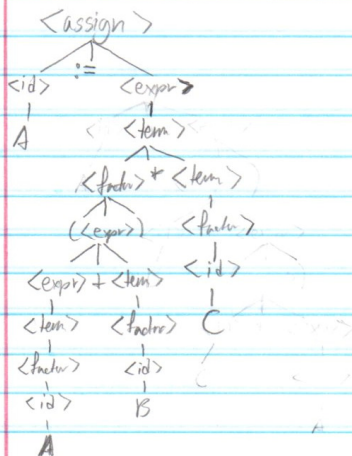 <assign>
<id> := <expr>
A <term>
<factor> * <term>
(<expr>) <factor>
<expr> + <term> <id>
<term> <factor> C
<factor> <id>
<id> B
A